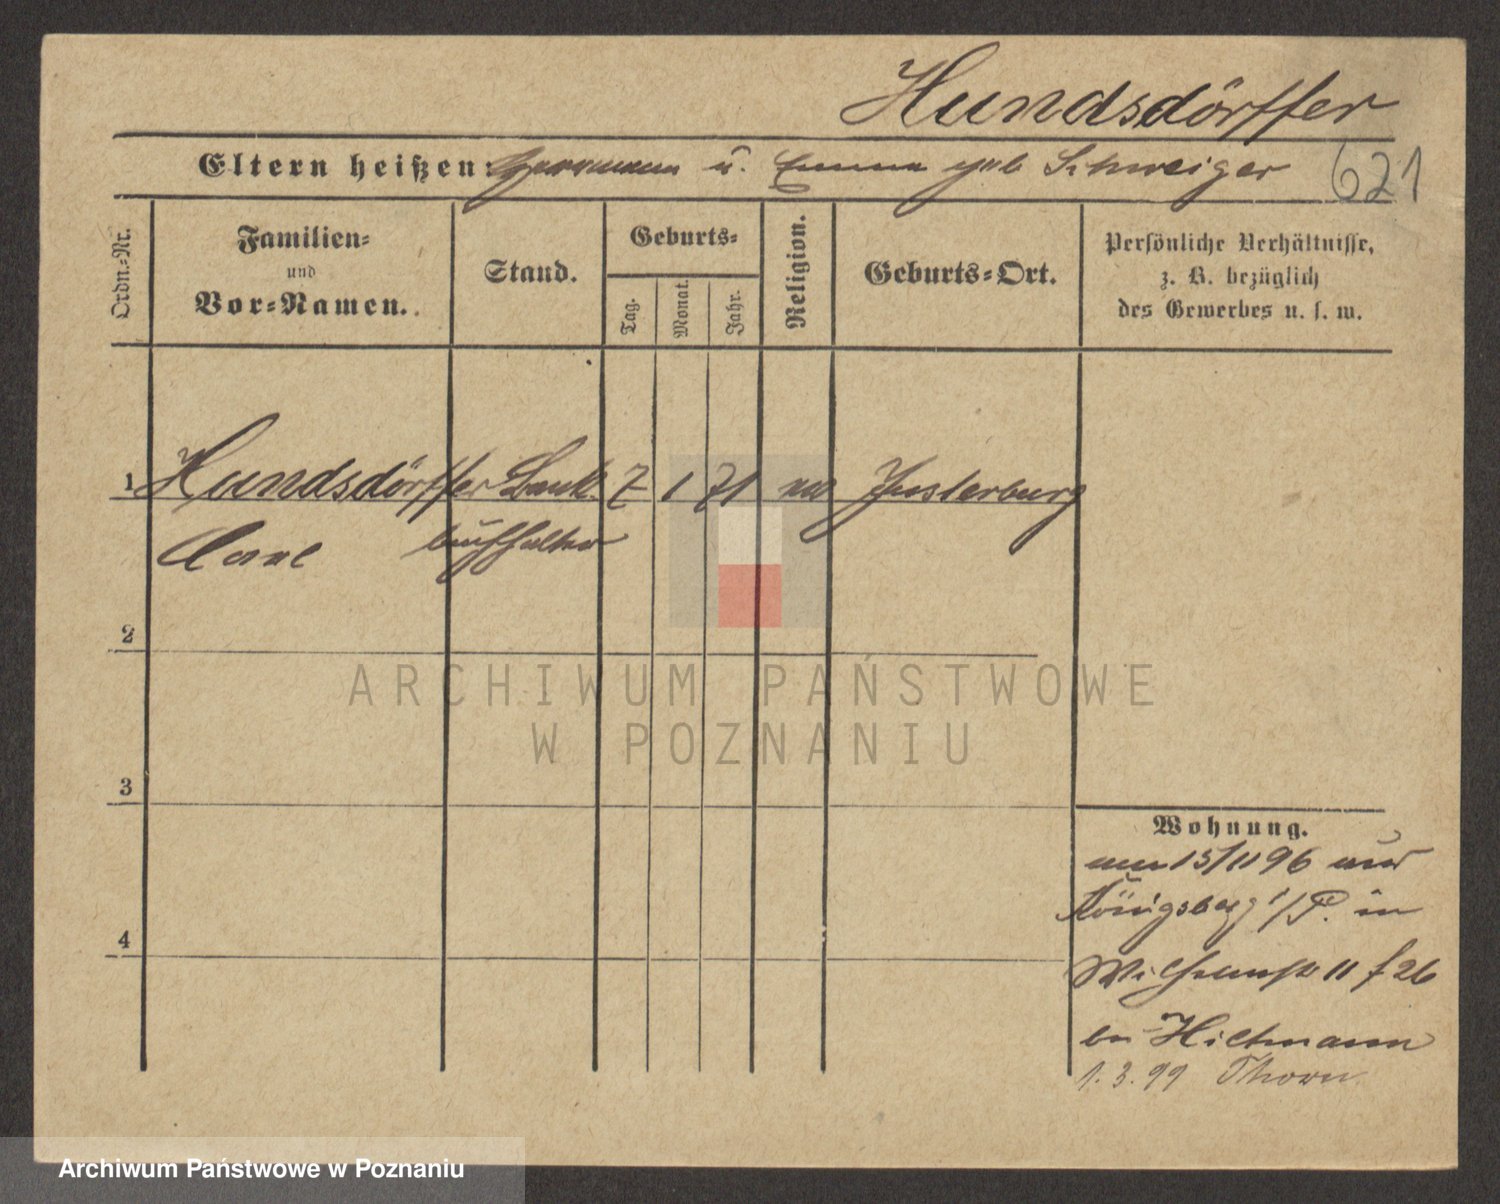 Hundsdörffer
Eltern heißen: Herrmann u. Emma geb Schweiger 621
Ordn.-Nr.
Familien-
und
Vor-Namen.
Stand.
Geburts-
Tag.
Monat.
Jahr.
Religion.
Geburts-Ort.
Persönliche Verhältnisse,
z. B. bezüglich
des Gewerbes u. s. w.
1 Hundsdörffer Bank- 7 1 71 Insterburg
Carl buchhalter
2
3
4
Wohnung.
15/11 96
Königsberg i/P. in
11 26
bei Hiltmann
1.3.99 Thorn
ARCHIWUM PAŃSTWOWE
W POZNANIU
Archiwum Państwowe w Poznaniu